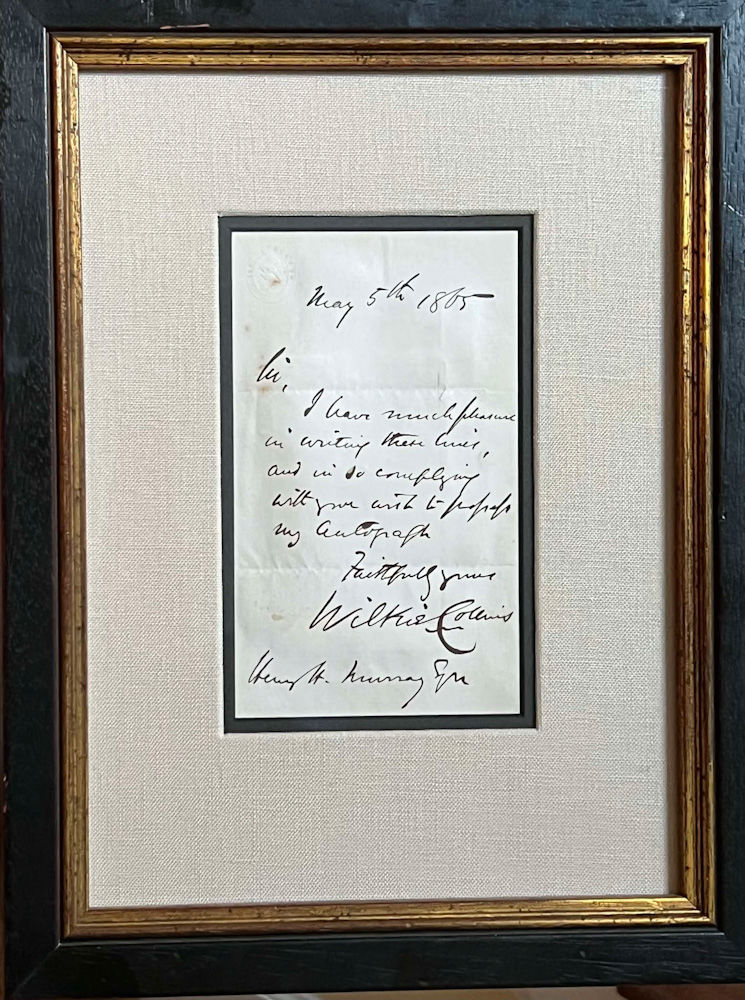 May 5th 1865
Sir,
I have much pleasure
in writing these lines,
and in so complying
with your wish to possess
my autograph
Faithfully yours
Wilkie Collins
Henry H. Murray Esqre